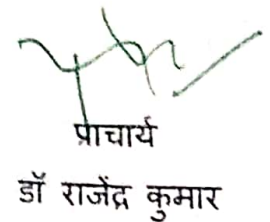 प्राचार्य
डॉ राजेंद्र कुमार